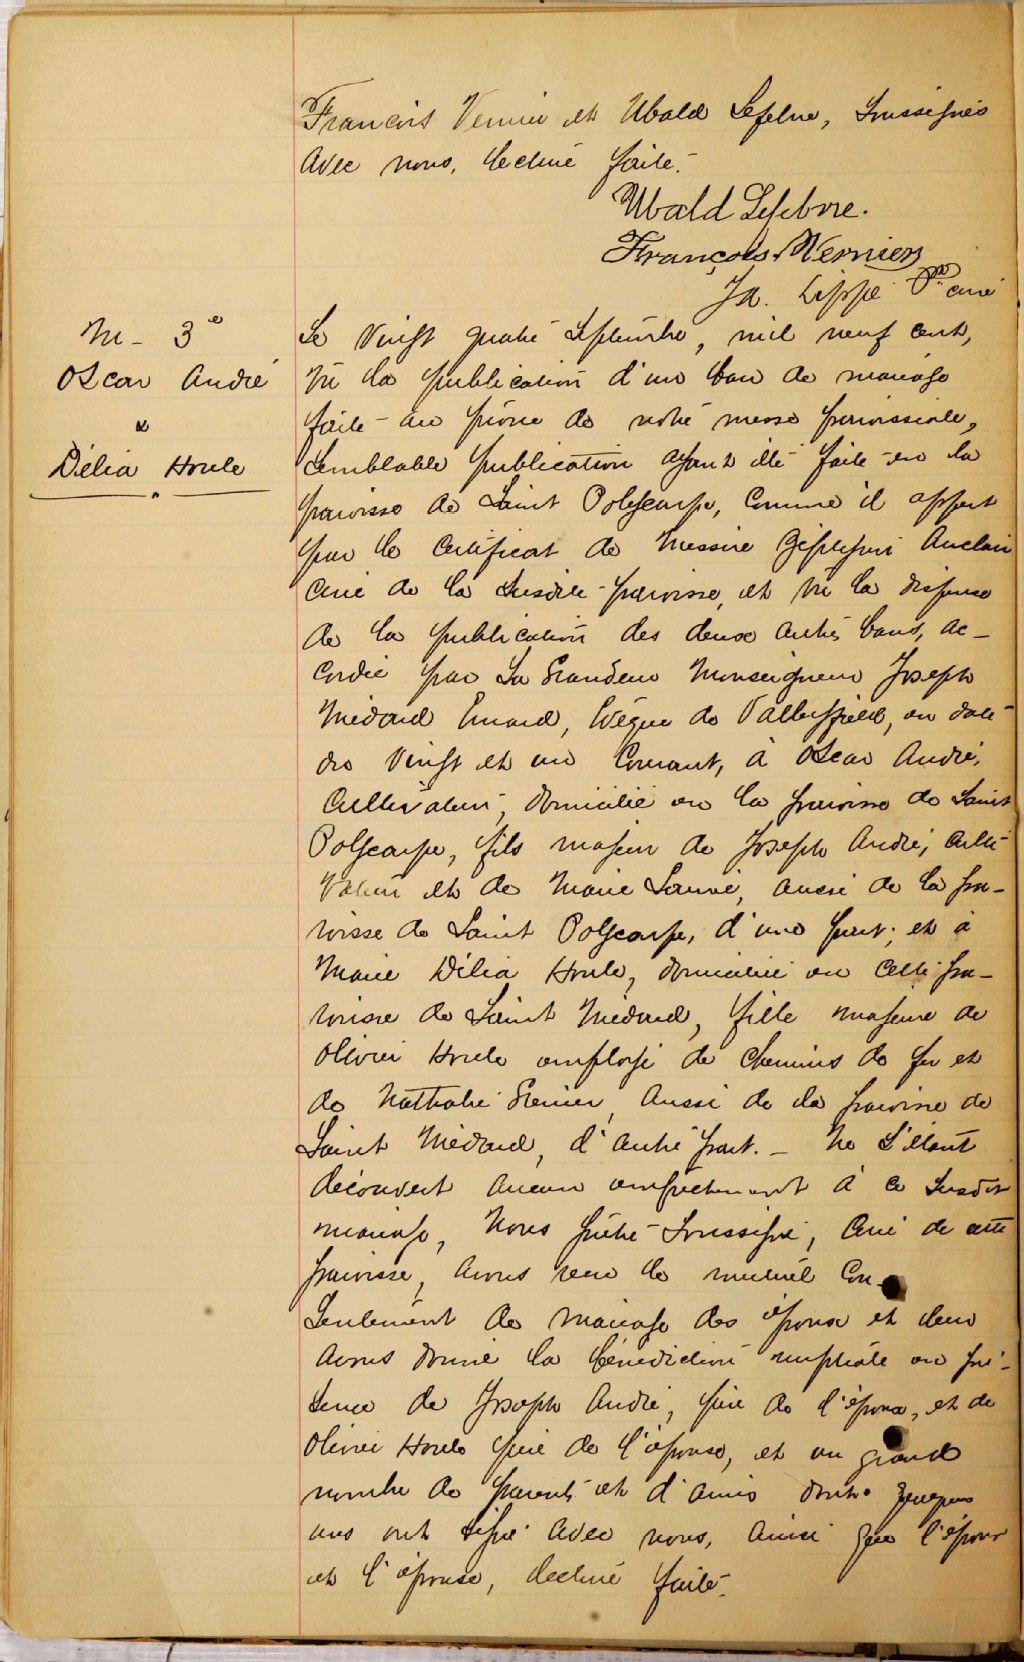 François Vernier et Ubald Lefebvre, soussignés
avec nous, lecture faite.
Ubald Lefebvre.
François Vernier
Jh. Lippé Ptre curé
M - 3e
Oscar André
&
Délia Houle
Le vingt quatre Septembre, mil neuf cent,
vu la publication d'un ban de mariage
faite au prône de notre messe paroissiale,
semblable publication ayant été faite en la
paroisse de Saint Polycarpe, comme il appert
par le certificat de Messire Auclair
curé de la susdite paroisse, et vu la dispense
de la publication des deux autres bans, ac-
cordée par Sa Grandeur Monseigneur Joseph
Médard Emard, Evêque de Valleyfield, en date
du vingt et un courant, à Oscar André,
cultivateur, domicilié en la paroisse de Saint
Polycarpe, fils majeur de Joseph André, culti-
vateur et de Marie Sauvé, aussi de la pa-
roisse de Saint Polycarpe, d'une part; et à
Marie Délia Houle, domiciliée en cette pa-
roisse de Saint Médard, fille majeure de
Olivier Houle employé de chemins de fer et
de Nathalie Grenier, aussi de la paroisse de
Saint Médard, d'autre part. - Ne s'étant
découvert aucun empêchement à ce susdit
mariage, Nous prêtre soussigné, curé de cette
paroisse, avons reçu le mutuel con-
sentement de mariage des époux et leur
avons donné la bénédiction nuptiale en pré-
sence de Joseph André, père de l'époux, et de
Olivier Houle père de l'épouse, et un grand
nombre de parents et d'amis dont quelques
uns ont signé avec nous, ainsi que l'époux
et l'épouse, lecture faite.